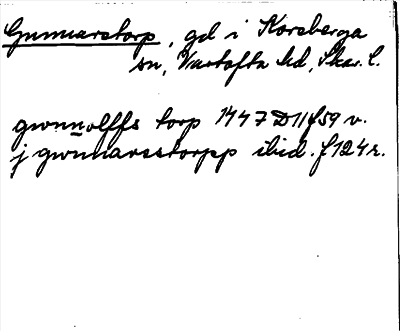 Gunnarstorp, gd i Korsberga
sn, Vartofta hd, Skar. l.
gwnnolffs torp 1447 D11 f59 v.
j gwnnarsstorpp ibid. f124r.